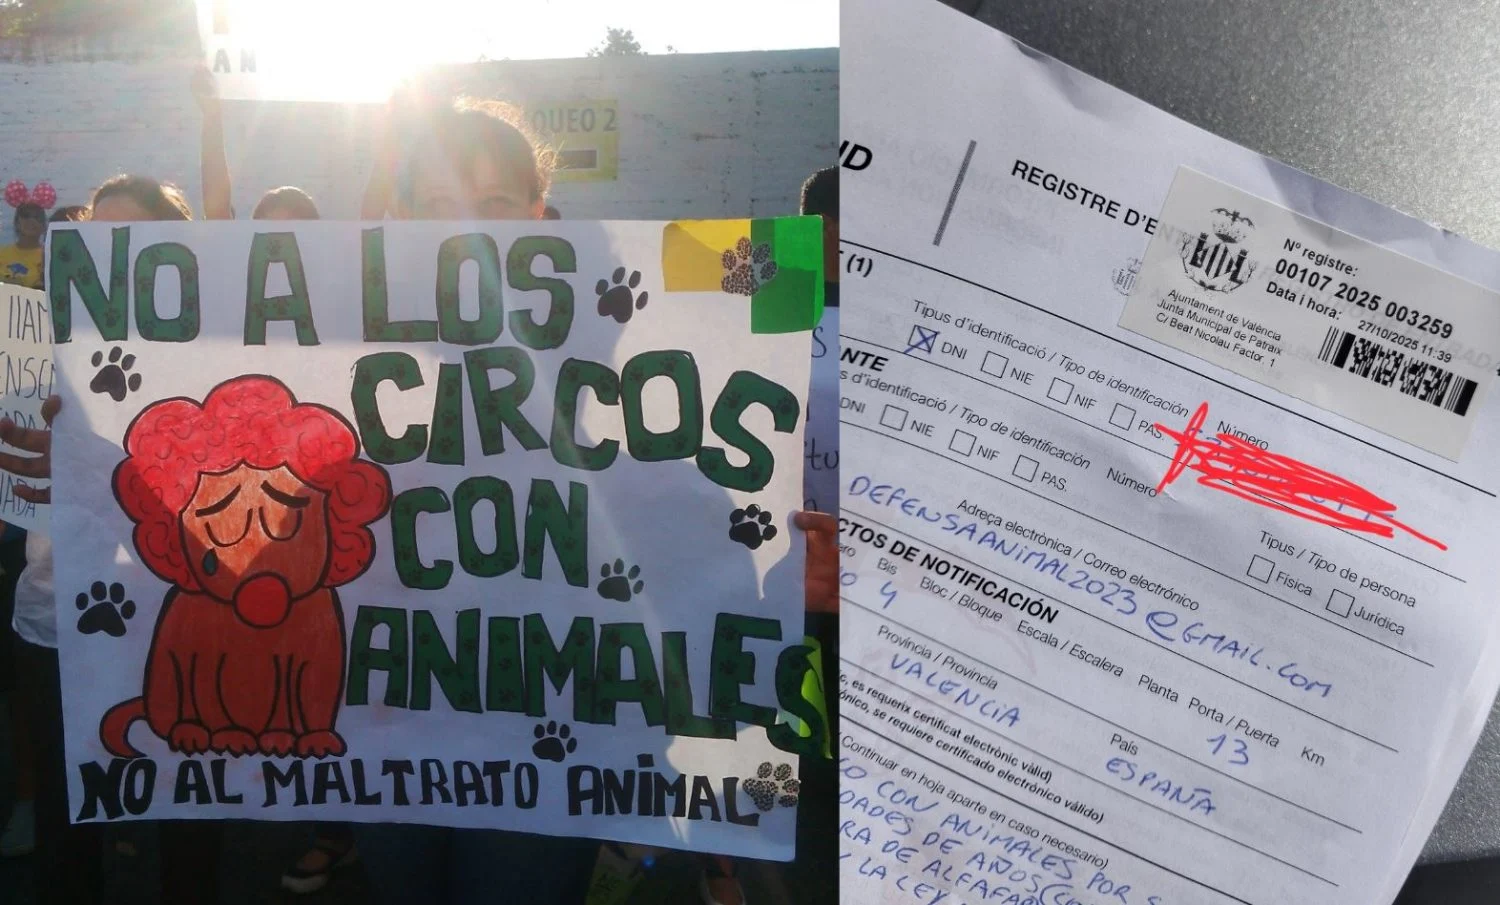 NO A LOS
CIRCOS
CON
ANIMALES
NO AL MALTRATO ANIMAL
QUEO 2
REGISTRE D'E
Nº registre:
00107 2025 003259
Data i hora:
27/10/2025 11:39
Ajuntament de València
Junta Municipal de Patraix
C/ Beat Nicolau Factor, 1
(1)
Tipus d'identificació / Tipo de identificación
Número
DNI NIE NIF PAS.
NTE
s d'identificació / Tipo de identificación
Número
DNI NIE NIF PAS.
Tipus / Tipo de persona
Física Jurídica
Adreça electrònica / Correo electrónico
DEFENSAANIMAL2023@GMAIL.COM
CTOS DE NOTIFICACIÓN
Bis Bloc / Bloque Escala / Escalera Planta Porta / Puerta Km
4 13
Província / Provincia
País
VALENCIA
ESPAÑA
c, es requerix certificat electrònic vàlid)
ónico, se requiere certificado electrónico válido)
Continuar en hoja aparte en caso necesario)
CON ANIMALES POR
DADES DE AÑOS
RA DE ALFAFAR
Y LA LEY